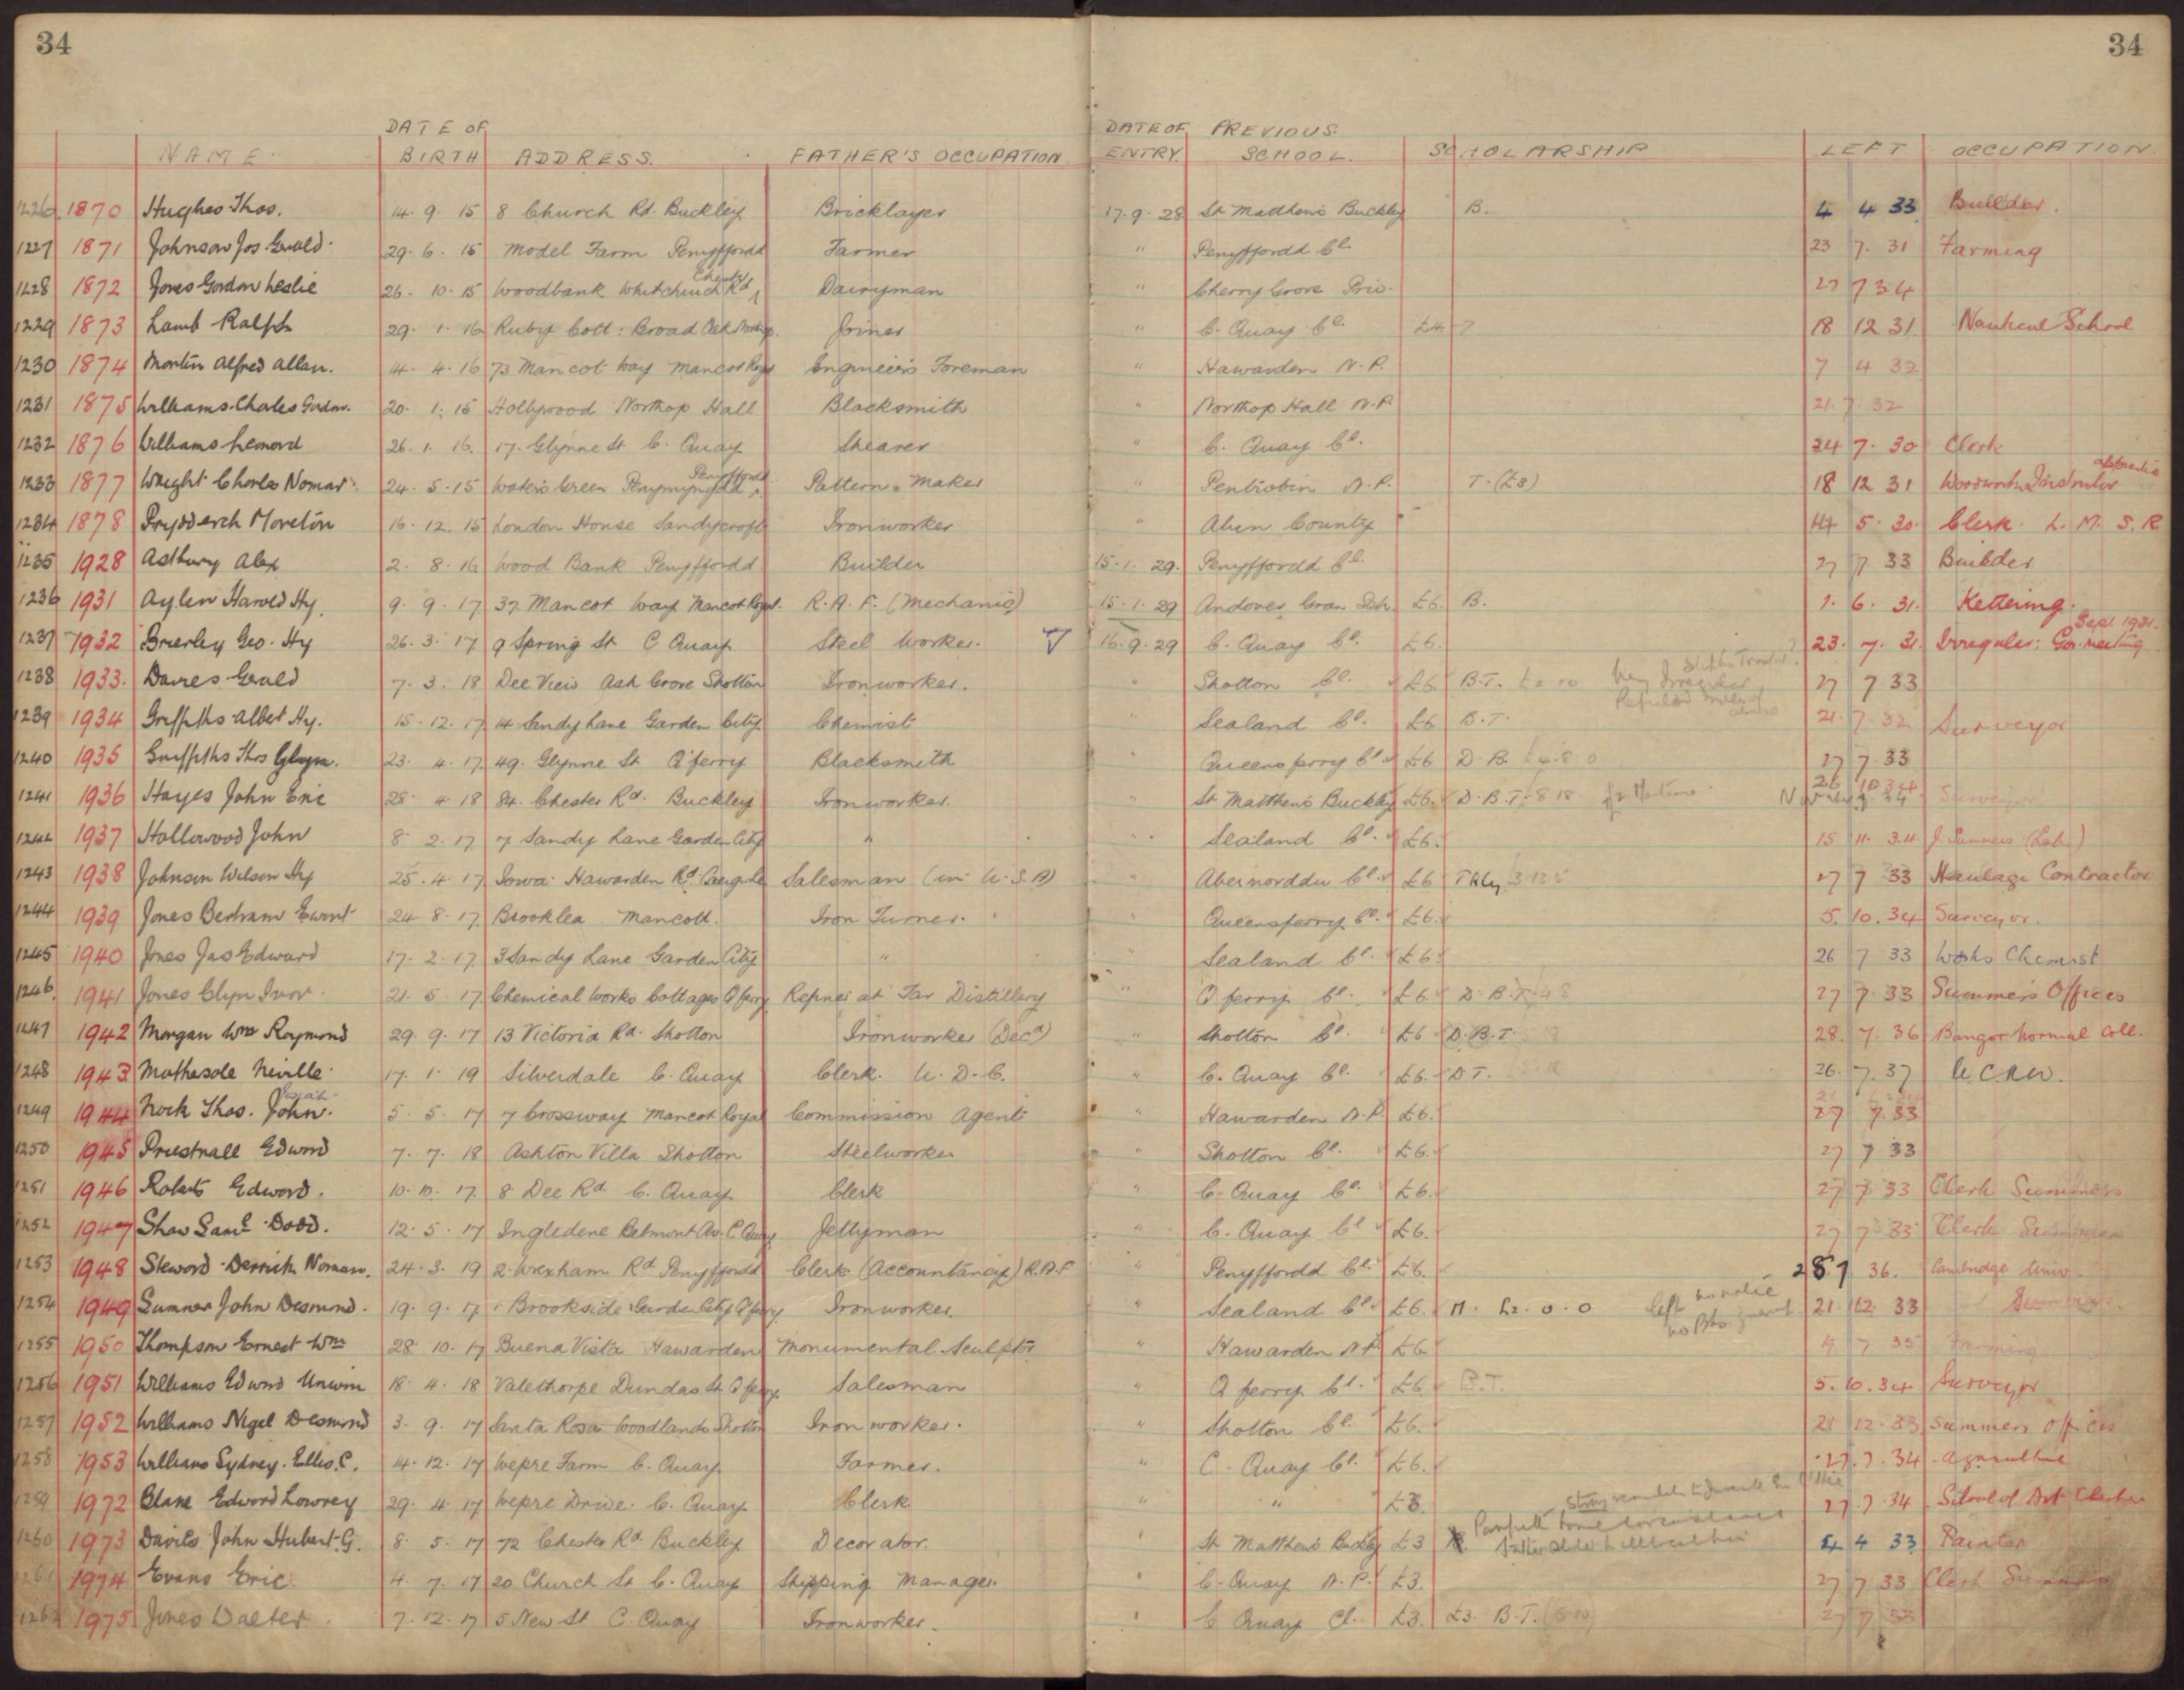 34 34
DATE OF DATE OF PREVIOUS
NAME BIRTH ADDRESS. FATHER'S OCCUPATION ENTRY. SCHOOL. SCHOLARSHIP LEFT OCCUPATION.
1226 1870 Hughes Thos. 14. 9. 15 8 Church Rd. Buckley Bricklayer 17. 9. 28 St Matthew's Buckley B. 4 4 33 Builder.
1227 1871 Johnson Jos Gerald 29. 6. 15 Model Farm Penyffordd Farmer " Penyffordd Cl. 23 7. 31 Farming
1228 1872 Jones Gordon Leslie 26. 10. 15 Woodbank Whitchurch Rd Chester Dairyman " Cherry Grove Priv. 27 7 34
1229 1873 Lamb Ralph 29. 1. 16 Ruby Cott: Broad Oak Northop. Joiner " C. Quay Cl. £4 7 18 12 31 Nautical School
1230 1874 Martin Alfred Allan. 14. 4. 16 73 Mancot Way Mancot Royal Engineer's Foreman " Hawarden N.P. 7 4 32
1231 1875 Williams Charles Gordon. 20. 1. 15 Hollywood Northop Hall Blacksmith " Northop Hall N.P. 21. 7 32
1232 1876 Williams Leonard 26. 1. 16. 17. Glynne St C. Quay Shearer " C. Quay Cl. 24 7. 30 Clerk
1233 1877 Wright Charles Norman 24. 5. 15 Water's Green Penymynydd Penyffordd Pattern Maker " Pentrobin N.P. T. (£3) 18 12 31 Woodwork Instructor apprentice
1234 1878 Prydderch Moreton 16. 12. 15 London House Sandycroft Ironworker " Aber County 14 5. 30. Clerk. L. M. S. R
1235 1928 Astbury Alex 2. 8. 16 Wood Bank Penyffordd. Builder 15. 1. 29. Penyffordd Cl. 27 7 33 Builder
1236 1931 Aylen Harold Hy. 9. 9. 17 37. Mancot Way Mancot Royal. R.A.F. (Mechanic) 15. 1. 29 Andover Gram Sch. £6. B. 1. 6. 31. Kettering.
1237 1932 Brierley Geo. Hy 26. 3. 17 9 Spring St C Quay Steel Worker. 16. 9. 29 C. Quay Cl. £6. 23. 7. 31. Irregular: Gov. meeting Sept. 1931.
1238 1933. Davies Gerald 7. 3. 18 Dee View Ash Grove Shotton Ironworker. " Shotton Cl. £6 B.T. Very Irregular 27 7 33
1239 1934 Griffiths Albert Hy. 15. 12. 17 14 Sandy Lane Garden City Chemist " Sealand Cl. £6 B.T. 21. 7. 32 Surveyor
1240 1935 Griffiths Thos Glynn. 23. 4. 17. 49. Glynne St Q'ferry Blacksmith " Queensferry Cl. £6 D.B. £4. 8 0 27 7. 33
1241 1936 Hayes John Eric 28. 4 18 84. Chester Rd. Buckley Ironworker. " St Matthew's Buckley £6. D.B.T. 26 10 34 Surveyor
1242 1937 Hollowood John 8. 2. 17. 7 Sandy Lane Garden City " " Sealand Cl. £6. 15 11. 34 J. Summers (Lab.)
1243 1938 Johnson Wilson Hy 25. 4. 17 Iowa Hawarden Rd Caergwrle Salesman (in U.S.A) " Abermorddu Cl. £6 27 7 33 Haulage Contractor
1244 1939 Jones Bertram Ewart 24 8. 17. Brooklea Mancott. Iron Turner. " Queensferry Cl. £6. 5. 10. 34 Surveyor.
1245 1940 Jones Jas Edward 17. 2. 17. 3 Sandy Lane Garden City " " Sealand Cl. £6. 26 7 33 Works Chemist
1246. 1941 Jones Glyn Ivor. 21. 5. 17 Chemical Works Cottages Q'ferry Refiner at Tar Distillery " Q'ferry Cl. £6. D.B.T. 27 7. 33 Summers Offices
1247 1942 Morgan Wm Raymond 29. 9. 17 13 Victoria Rd. Shotton Ironworker (Decd) " Shotton Cl. £6 D.B.T. 28. 7. 36 Bangor Normal Coll.
1248 1943 Mothersole Neville 17. 1. 19 Silverdale C. Quay Clerk. U.D.C. " C. Quay Cl. £6. D T. 26. 7. 37 U.C.N.W.
1249 1944 Nock Thos. John. 5. 5. 17 7 Crossway Mancot Royal Commission Agent " Hawarden N.P. £6. 27 7. 33
1250 1945 Priestnall Edward 7. 7. 18 Ashton Villa Shotton Steelworker " Shotton Cl. £6. 27 7 33
1251 1946 Roberts Edward. 10. 10. 17. 8 Dee Rd. C. Quay Clerk " C. Quay Cl. £6. 27 7 33 Clerk Summers
1252 1947 Shaw Saml Dodd. 12. 5. 17 Ingledene Belmont Av. C. Quay Jettyman " C. Quay Cl £6. 27 7 33 Clerk Summers
1253 1948 Steward Derrick Norman. 24. 3. 19 2. Wrexham Rd Penyffordd Clerk (Accountancy) R.A.F " Penyffordd Cl. £6. 28. 7. 36. Cambridge Univ.
1254 1949 Sumner John Desmond. 19. 9. 17 1 Brookside Garden City Q'ferry Ironworker. " Sealand Cl. £6. M. £2. 0. 0 left no notice 21. 12. 33
1255 1950 Thompson Ernest Wm 28. 10. 17 Buena Vista Hawarden Monumental Sculptor " Hawarden N.P. £6. 7 35 Farming
1256 1951 Williams Edward Unwin 18. 4. 18 Valethorpe Dundas St Q'ferry Salesman " Q'ferry Cl. £6. B.T. 5. 10. 34 Surveyor
1257 1952 Williams Nigel Desmond 3. 9. 17 Santa Rosa Woodlands Shotton Iron worker. " Shotton Cl. £6. 21 12. 33 Summers Offices
1258 1953 Williams Sydney. Ellis. C. 14. 12. 17 Wepre Farm C. Quay Farmer. " C. Quay Cl. £6. 27. 7. 34 Agriculture
1259 1972 Blake Edward Lowrey 29. 4 17 Wepre Drive. C. Quay Clerk " " £3. 27. 7. 34. School of Art Chester
1260 1973 Davies John Hubert. G. 8. 5. 17 72 Chester Rd. Buckley Decorator. " St Matthew's Buckley £3 4 4 33 Painter
1261 1974 Evans Eric 4. 7. 17 20 Church St C. Quay Shipping Manager. " C. Quay N.P. £3. 27 7 33 Clerk Summers
1262 1975 Jones Walter. 7. 12. 17 5 New St C. Quay Ironworker. " C Quay Cl. £3. £3. B.T. 27 7 33